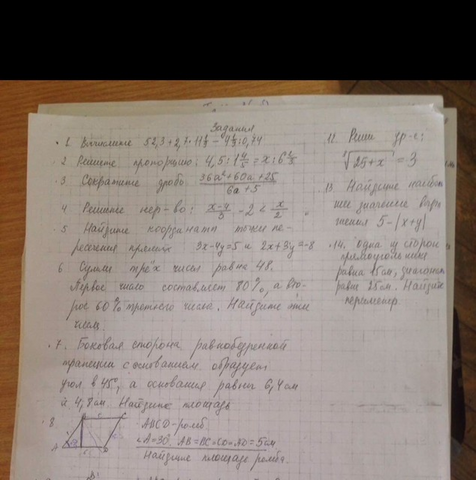 Задания
1. Вычислите 52,3+2,7·11 1/9 - 4 1/9:0,74
2 Решите пропорцию: 4,5:1 4/5 = x:6 2/3
3. Сократите дробь: 36a²+60a+25 / 6a+5
4 Решите нер-во: x-4/3 - 2 < x/2
5 Найдите координата точки пе-
ресечения прямых: 3x-4y=5 и 2x+3y=-8
6 Сумма трёх чисел равна 48.
Первое число составляет 80%, а вто-
рое 60% третьего числа. Найдите эти
числа.
7. Боковая сторона равнобедренной
трапеции с основанием образует
угол в 45°, а основания равны 6,4 см
и 4,8 см. Найдите площадь
8. ABCD-ромб.
∠A=30° AB=BC=CD=AD=5см
Найдите площадь ромба.
Реши ур-е:
√25+x = 3
13 Найдите наиболь
шее значение выра
жения 5-|x+y|
14. Одна из сторон
прямоугольника
равна 15см, диагональ
равна 25см. Найдите
периметр